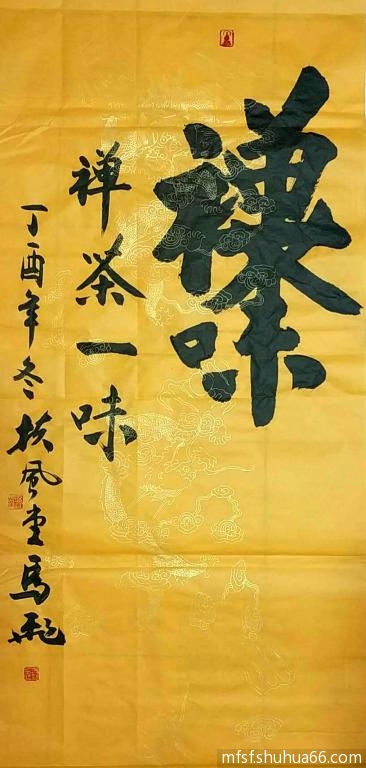 禪味
禅茶一味
丁酉年冬扶風堂馬飛
mfsfshuhua66.com